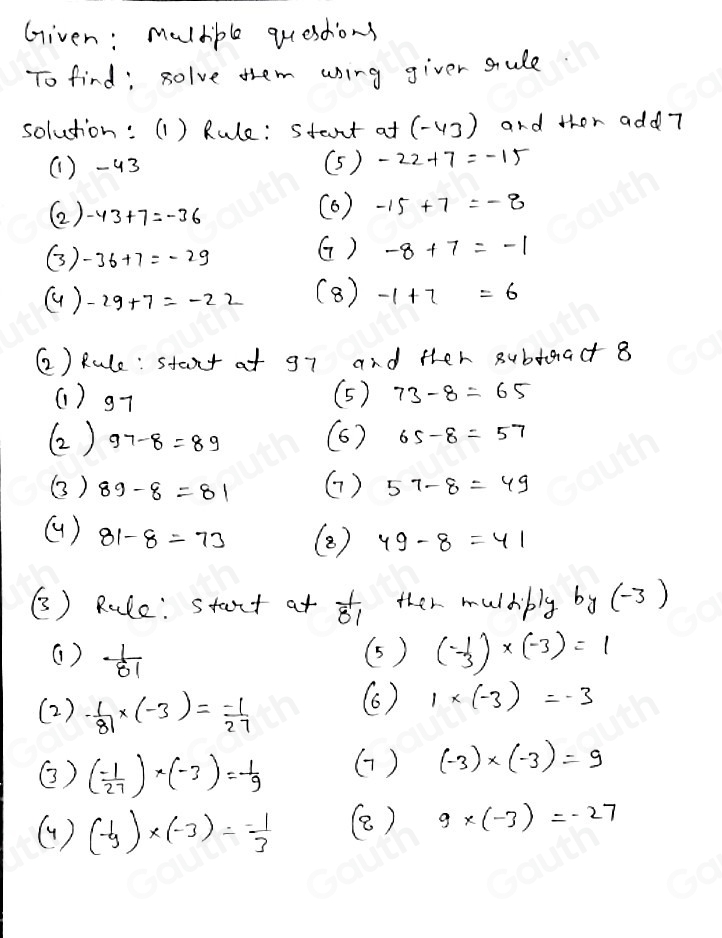 Given: Multiple questions
To find: solve them using given rule.
Solution: (1) Rule: start at (-43) and then add 7
(1) -43
(2) -43+7=-36
(3) -36+7=-29
(4) -29+7=-22
(5) -22+7=-15
(6) -15+7=-8
(7) -8+7=-1
(8) -1+7 =6
(2) Rule: start at 97 and then subtract 8
(1) 97
(2) 97-8=89
(3) 89-8=81
(4) 81-8=73
(5) 73-8=65
(6) 65-8=57
(7) 57-8=49
(8) 49-8=41
(3) Rule: start at 1/81 then multiply by (-3)
(1) 1/81
(2) 1/81×(-3)=-1/27
(3) (-1/27)×(-3)=1/9
(4) (1/9)×(-3)=-1/3
(5) (-1/3)×(-3)=1
(6) 1×(-3)=-3
(7) (-3)×(-3)=9
(8) 9×(-3)=-27
Gauth